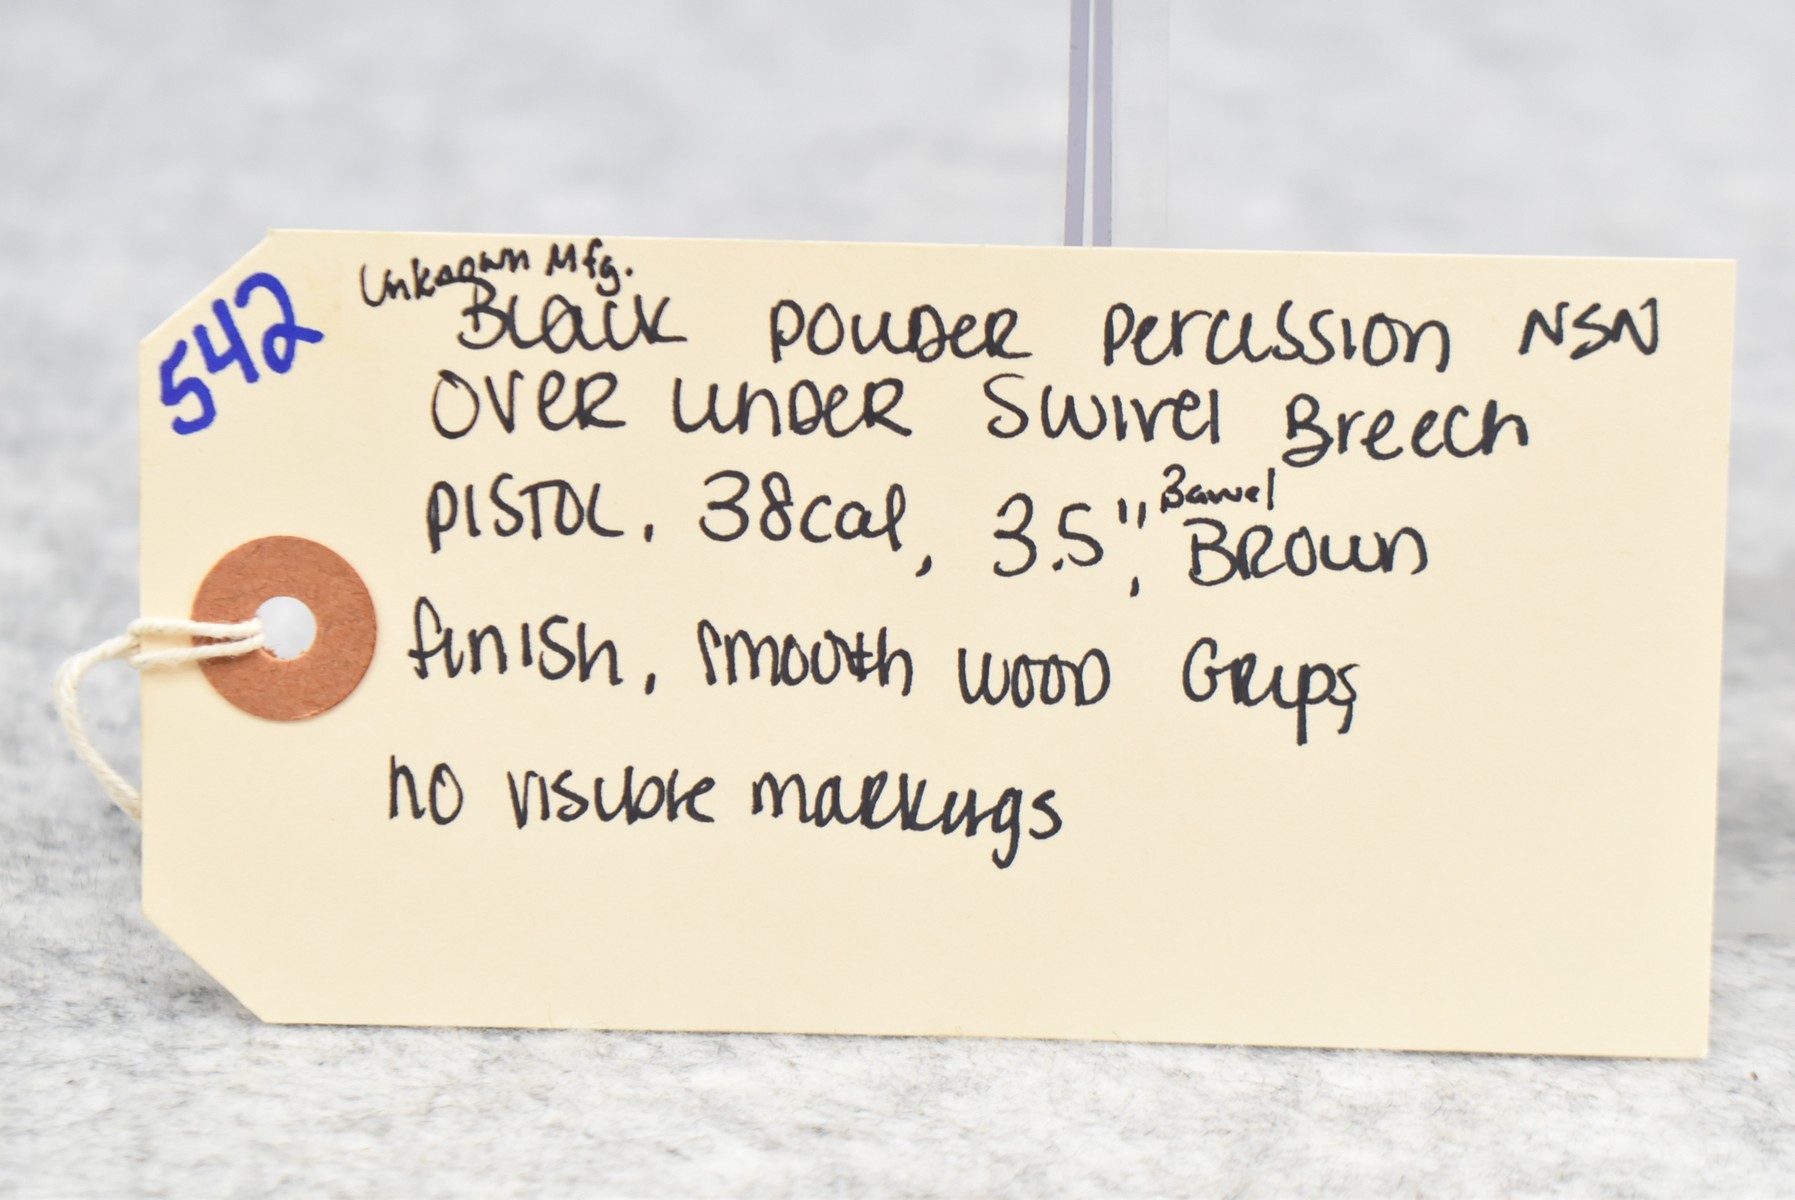 542
Unknown Mfg.
Black powder percussion NSN
over under swivel Breech
pistol, 38cal, 3.5", Barrel Brown
finish, smooth wood Grips
no visible markings